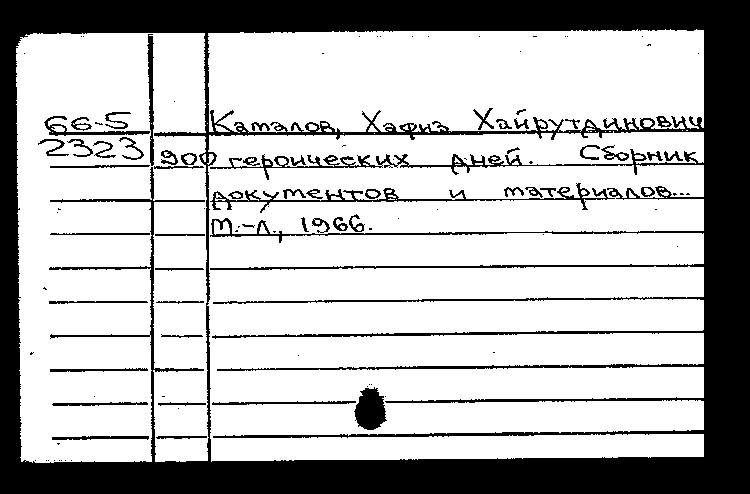 66-5 Каталов, Хафиз Хайрутдинович
2323 900 героических дней. Сборник
документов и материалов...
М.-Л., 1966.